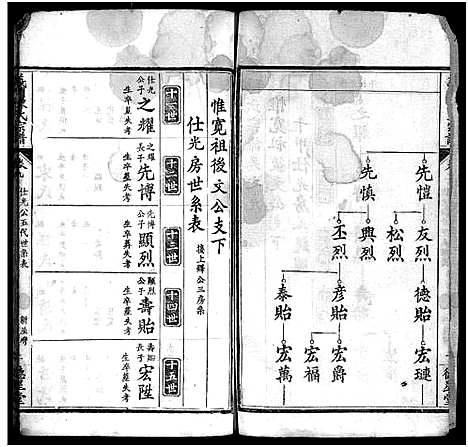 先愷
友烈
德貽
宏璉
松烈
先慎
興烈
丕烈
彦貽
宏爵
宏福
泰貽
宏萬
惟寬祖後文公支下
仕光房世系表
接上鐸公三房系
十一世
仕光公子之耀
生卒墓失考
十二世
之耀公子先博
生卒墓失考
十三世
先博公子顯烈
生卒葬失考
十四世
顯烈公子壽貽
生卒墓失考
十五世
壽貽長子宏陞
生卒墓失考
仕光公五代世系表